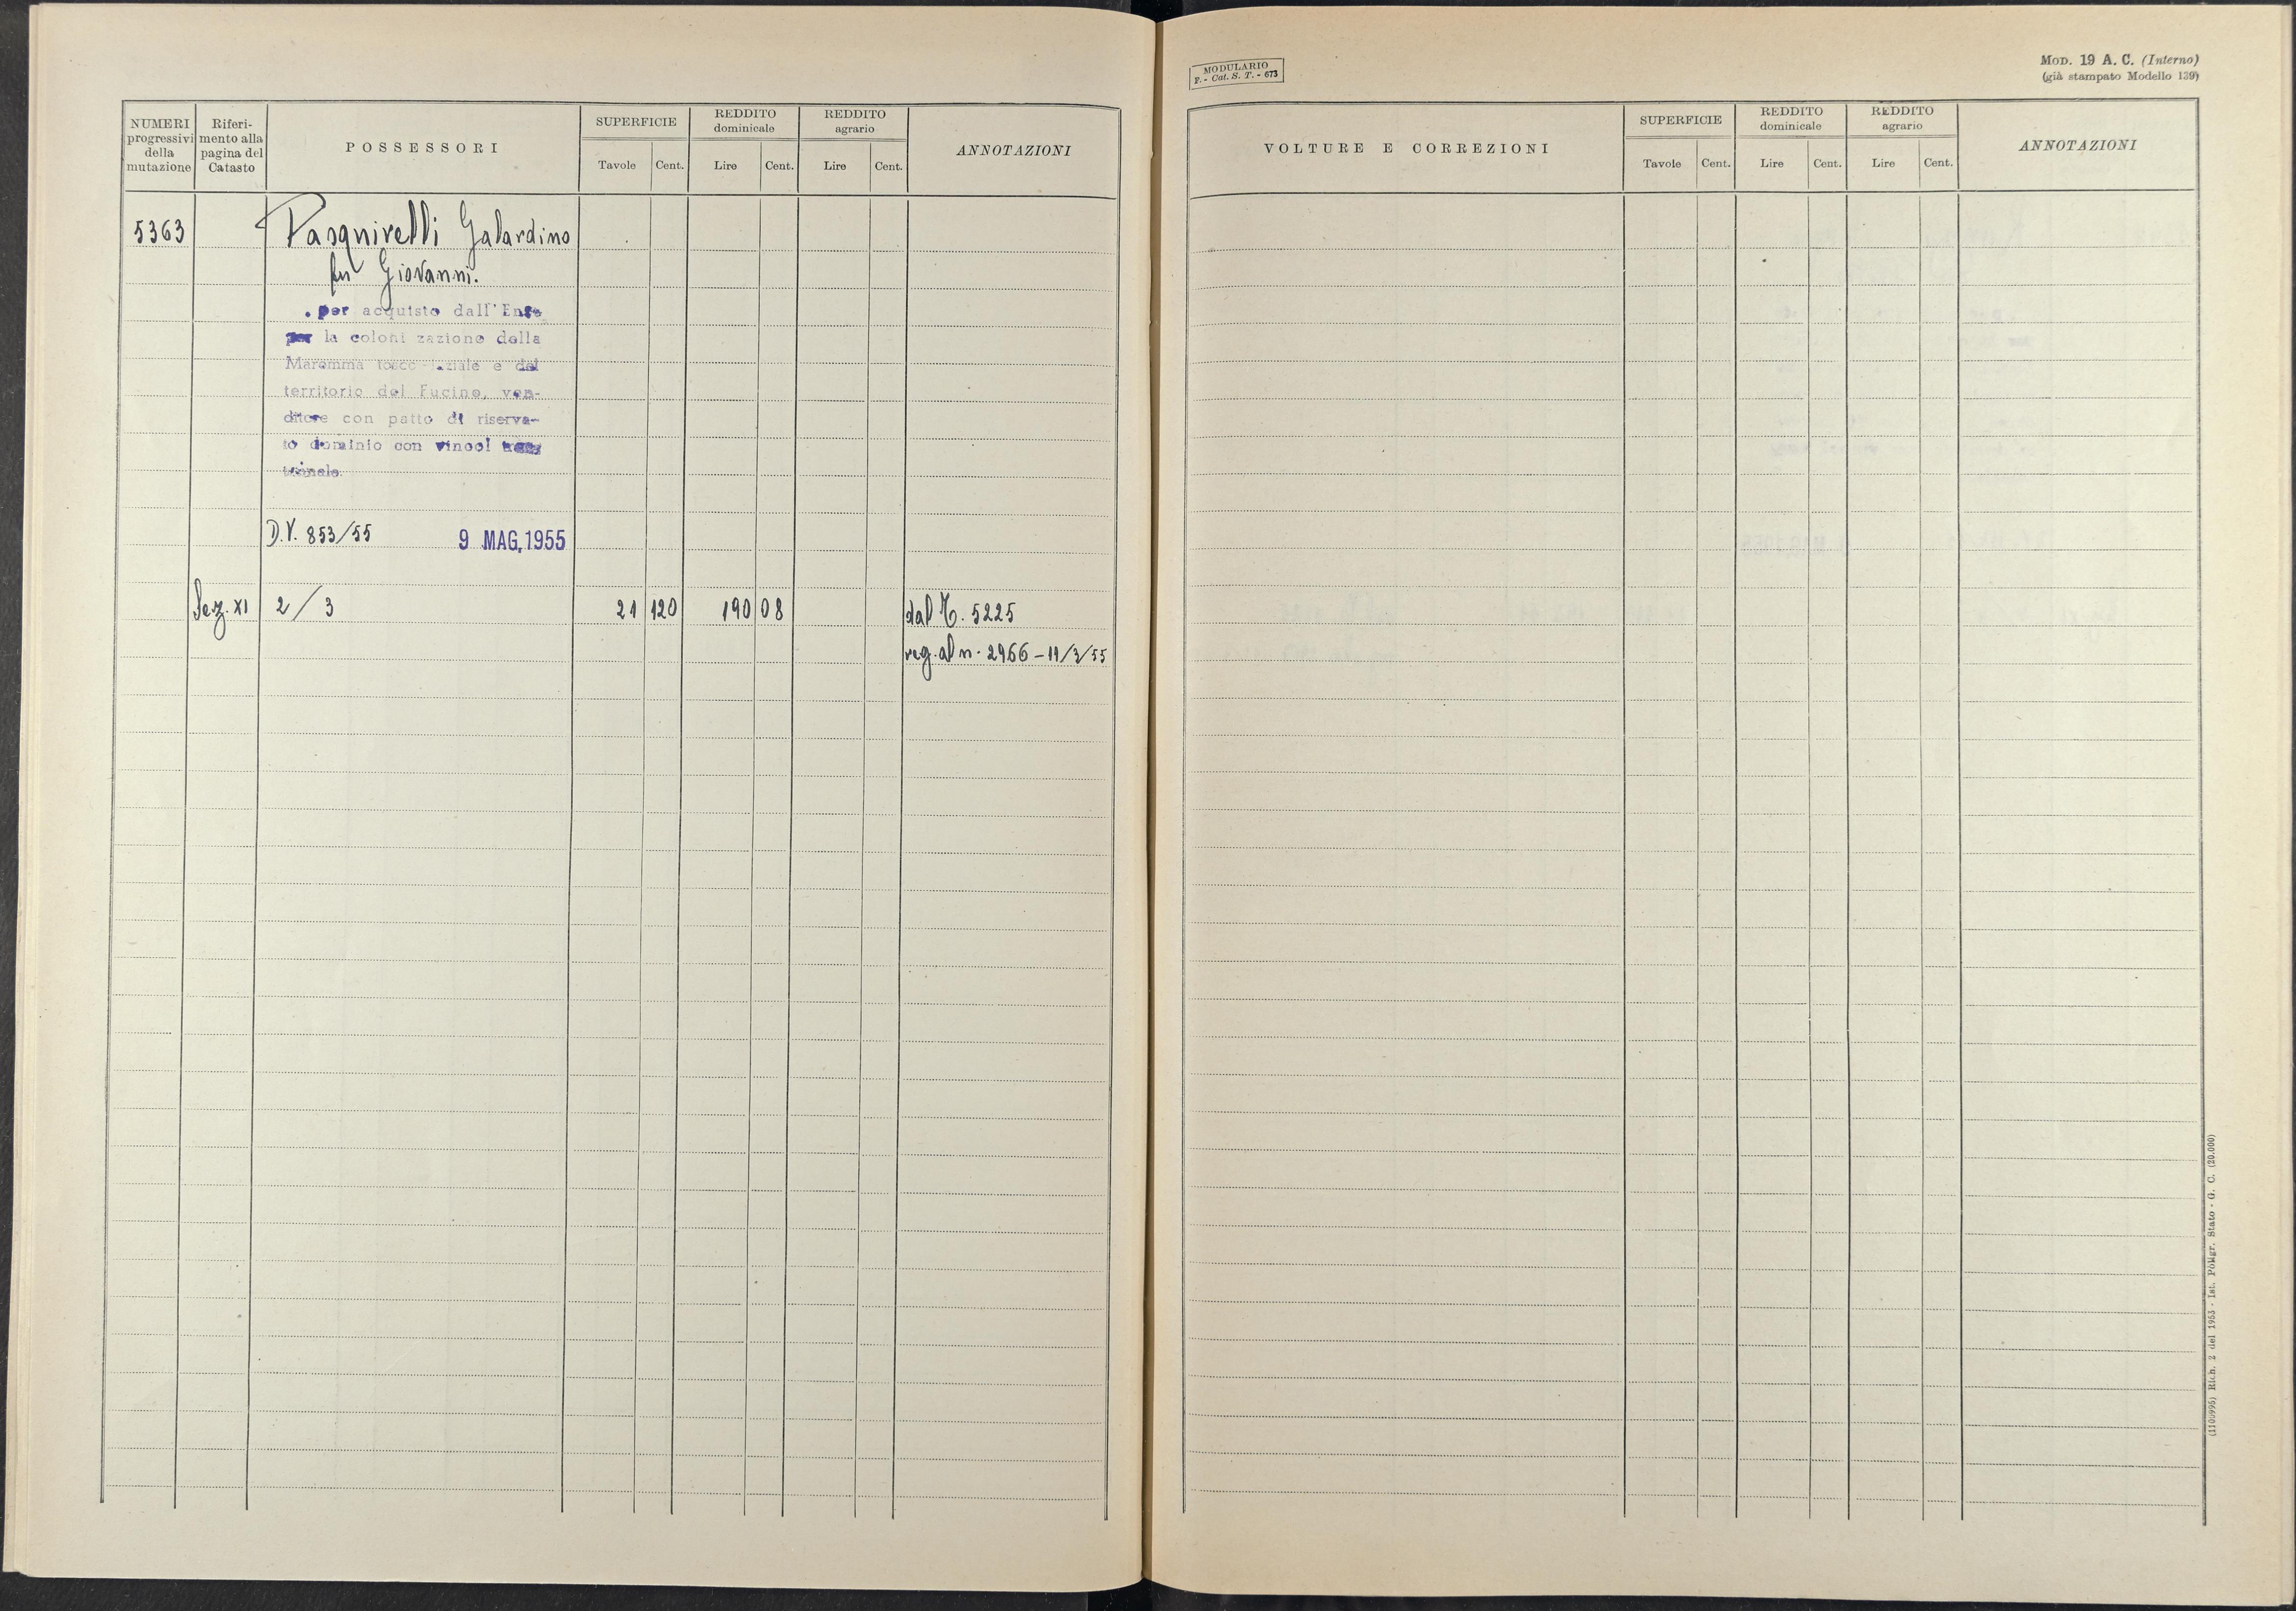 NUMERI
progressivi
della
mutazione
Riferi-
mento alla
pagina del
Catasto
POSSESSORI
SUPERFICIE
Tavole Cent.
REDDITO
dominicale
Lire Cent.
REDDITO
agrario
Lire Cent.
ANNOTAZIONI
5363 Pasquirelli Galardino
fu Giovanni.
per acquisto dall'Ente
per la coloni zazione della
Maremma tosco-laziale e del
territorio del Fucino, ven-
ditore con patto di riserva-
to dominio con vincol
D.V. 853/55 9 MAG. 1955
Sez. XI 2/3 21 120 190 08 dal M. 5225
reg. al n. 2966 - 19/3/55
MODULARIO
F. - Cat. S. T. - 673
MOD. 19 A. C. (Interno)
(già stampato Modello 139)
VOLTURE E CORREZIONI
SUPERFICIE
Tavole Cent.
REDDITO
dominicale
Lire Cent.
REDDITO
agrario
Lire Cent.
ANNOTAZIONI
(1100996) Rich. 2 del 1953 - Ist. Poligr. Stato - G. C. (20.000)